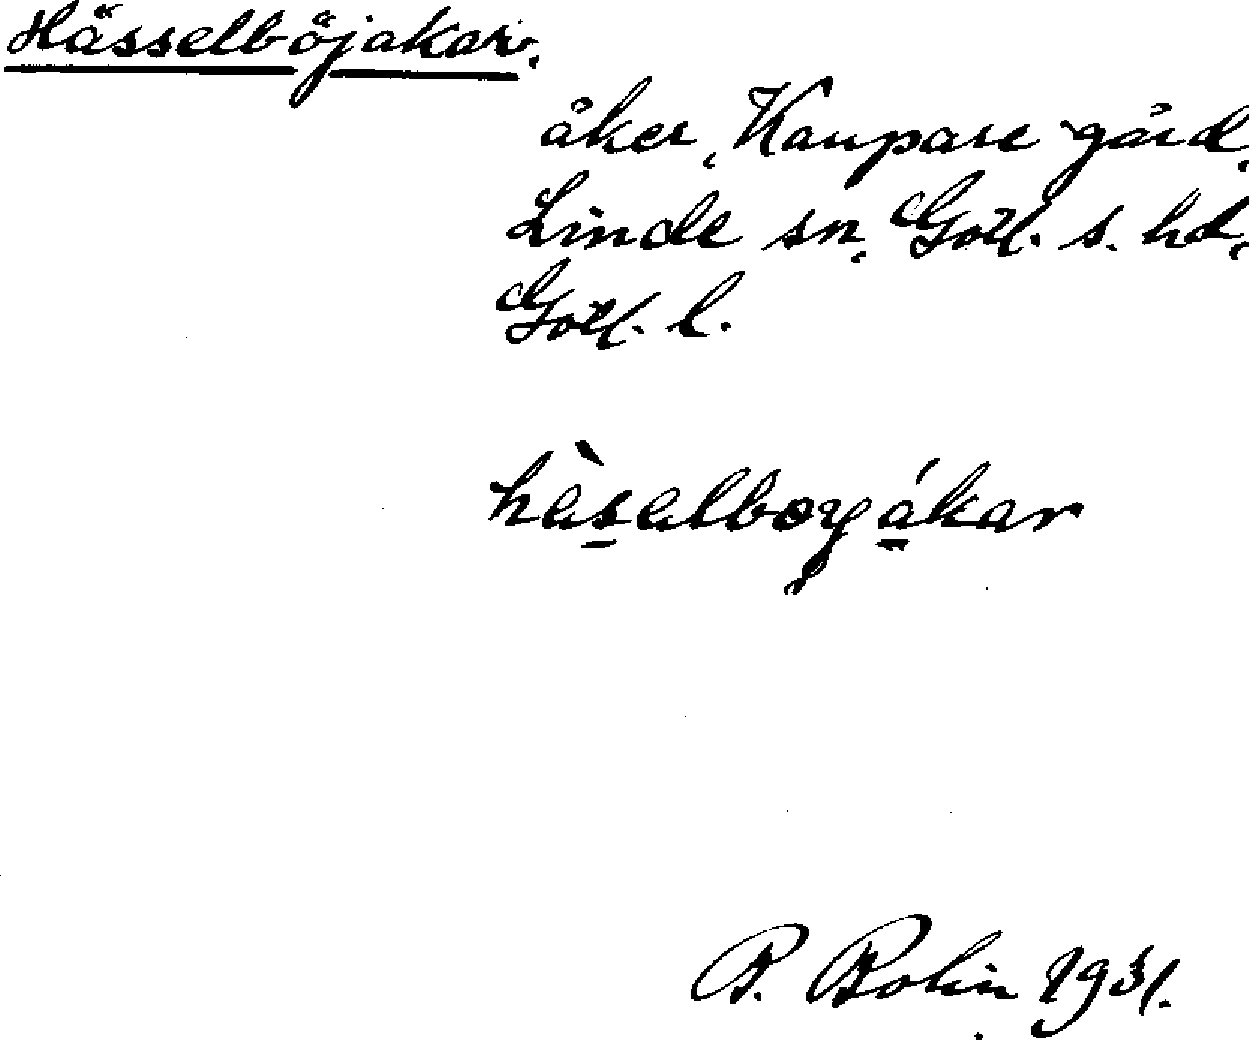 Hässelböjakar.
åker, Kaupare gård,
Linde sn, Gotl. s. hd,
Gotl. l.
hàsalboyákar
B. Bolin 1931.